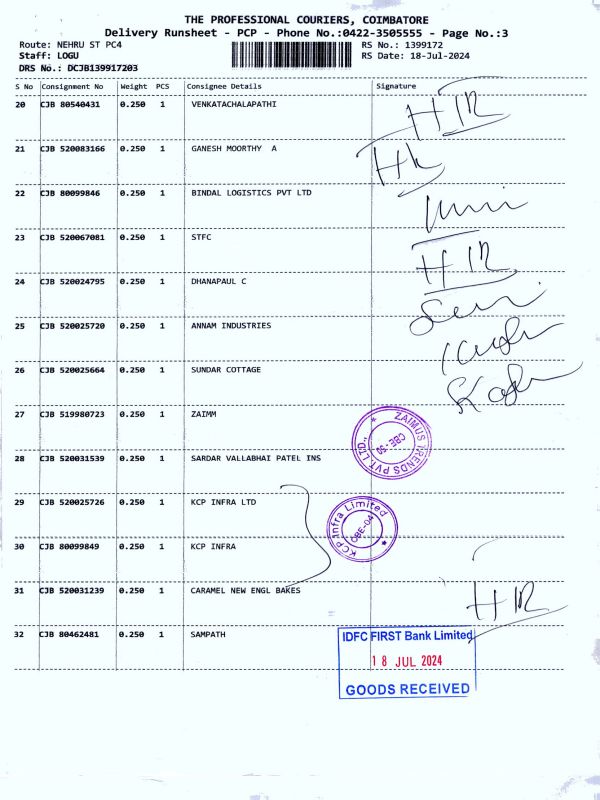 THE PROFESSIONAL COURIERS, COIMBATORE
Delivery Runsheet - PCP - Phone No.:0422-3505555 - Page No.:3
Route: NEHRU ST PC4 RS No.: 1399172
Staff: LOGU RS Date: 18-Jul-2024
DRS No.: DCJB139917203
S No Consignment No Weight PCS Consignee Details Signature
20 CJB 80540431 0.250 1 VENKATACHALAPATHI
21 CJB 520083166 0.250 1 GANESH MOORTHY A
22 CJB 80099846 0.250 1 BINDAL LOGISTICS PVT LTD
23 CJB 520067081 0.250 1 STFC
24 CJB 520024795 0.250 1 DHANAPAUL C
25 CJB 520025720 0.250 1 ANNAM INDUSTRIES
26 CJB 520025664 0.250 1 SUNDAR COTTAGE
27 CJB 519980723 0.250 1 ZAIMM
ZAIMUS TRENDS PVT. LTD.,
CBE-50
28 CJB 520031539 0.250 1 SARDAR VALLABHAI PATEL INS
29 CJB 520025726 0.250 1 KCP INFRA LTD
KCP Infra Limited
CBE-04
30 CJB 80099849 0.250 1 KCP INFRA
31 CJB 520031239 0.250 1 CARAMEL NEW ENGL BAKES
32 CJB 80462481 0.250 1 SAMPATH
IDFC FIRST Bank Limited
18 JUL 2024
GOODS RECEIVED